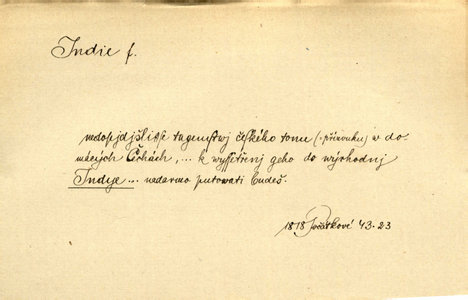 Indie f.
nedopjdjšliťse tagemstwj českého tonu (-přízwuku) w do
mácých Čechách, ... k wyssetřenj geho do wýchodnj
Indye ... nedarmo putowati budeš.
1818 Počátkové 43.23